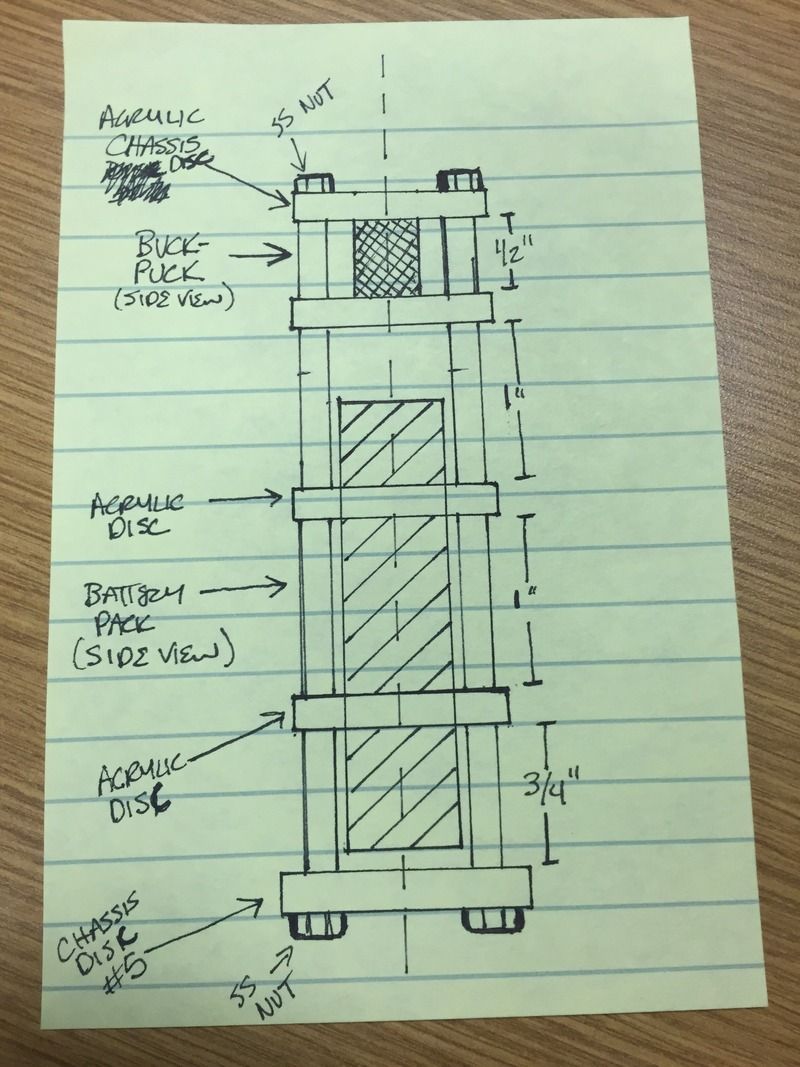 ACRYLIC
CHASSIS
DISC
SS NUT
BUCK-
PUCK
(SIDE VIEW)
1/2"
1"
ACRYLIC
DISC
BATTERY
PACK
(SIDE VIEW)
1"
ACRYLIC
DISC
3/4"
CHASSIS
DISC
#5
SS
NUT